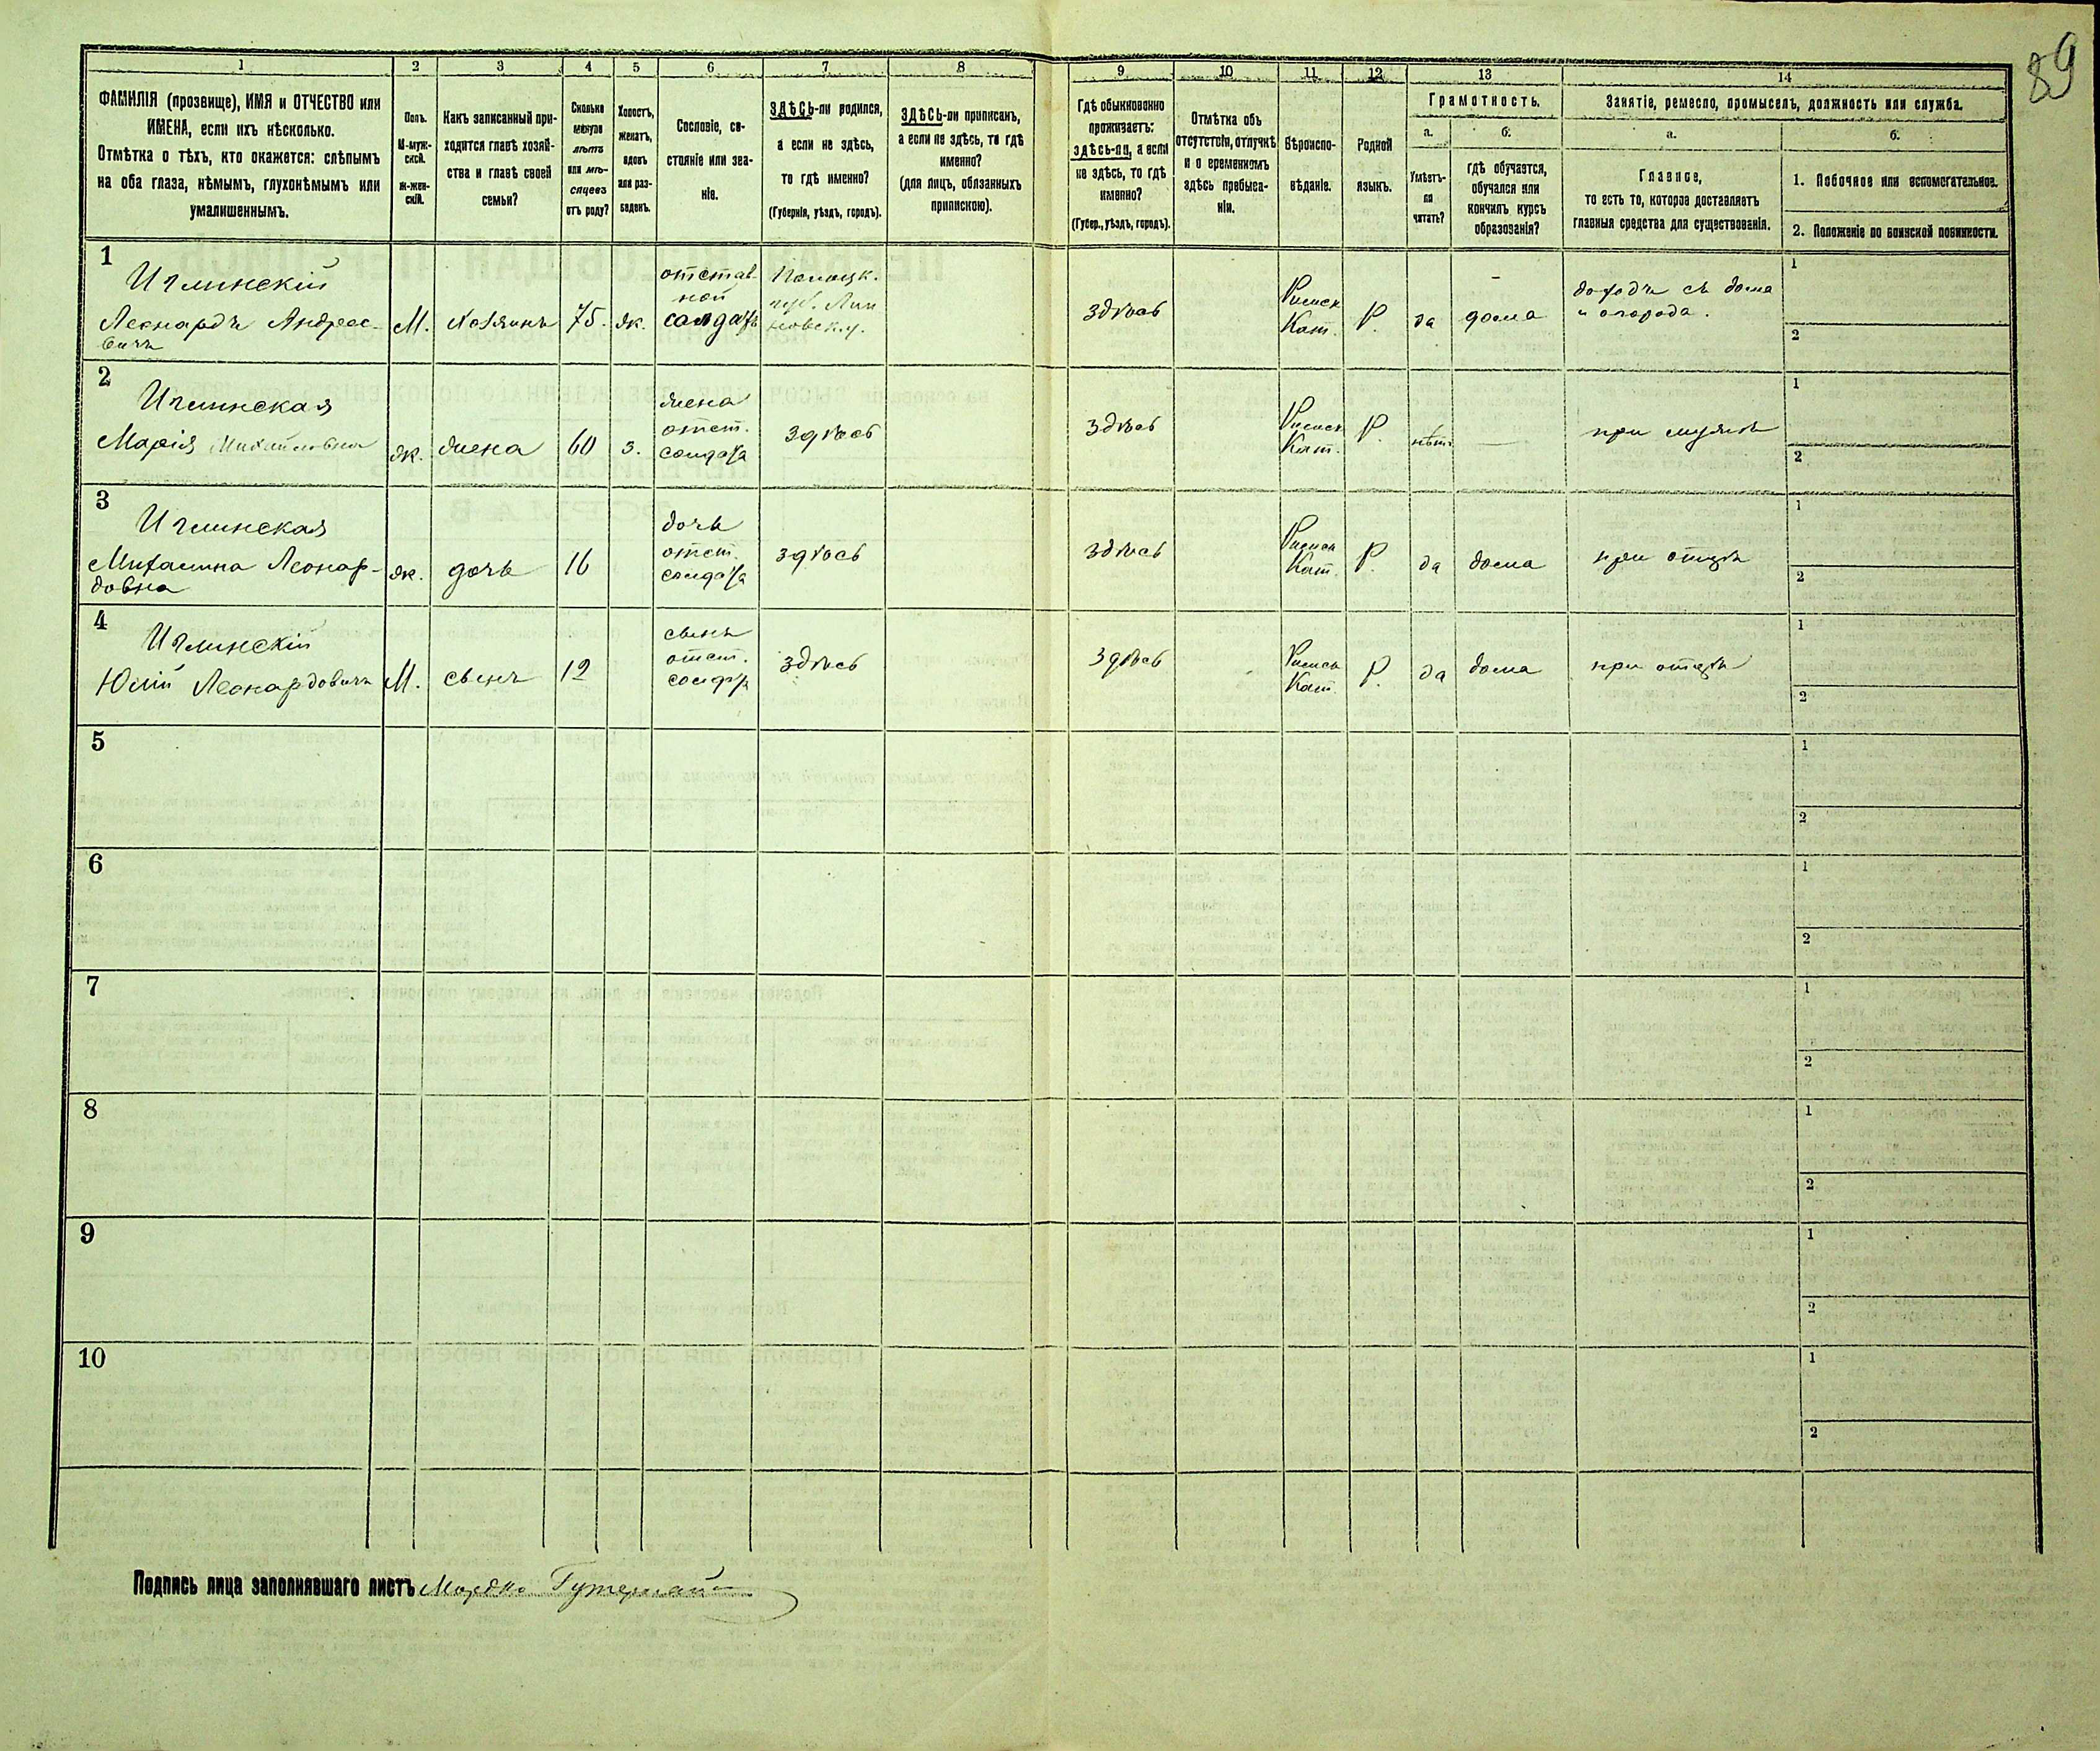 89
1 2 3 4 5 6 7 8 9 10 11 12 13 14
ФАМИЛІЯ (прозвище), ИМЯ и ОТЧЕСТВО или
ИМЕНА, если ихъ нѣсколько.
Отмѣтка о тѣхъ, кто окажется: слѣпымъ
на оба глаза, нѣмымъ, глухонѣмымъ или
умалишеннымъ.
Полъ.
М-муж-
ской.
ж-жен-
скій.
Какъ записанный при-
ходится главѣ хозяй-
ства и главѣ своей
семьи?
Сколько
минуло
лѣтъ
или мѣ-
сяцевъ
отъ роду?
Холостъ,
женатъ,
вдовъ
или раз-
веденъ.
Сословіе, со-
стояніе или зва-
ніе.
ЗДѢСЬ-ли родился,
а если не здѣсь,
то гдѣ именно?
(Губернія, уѣздъ, городъ).
ЗДѢСЬ-ли приписанъ,
а если не здѣсь, то гдѣ
именно?
(для лицъ, обязанныхъ
припискою).
Гдѣ обыкновенно
проживаетъ:
здѣсь-ли, а если
не здѣсь, то гдѣ
именно?
(Губер., уѣздъ, городъ).
Отмѣтка объ
отсутствіи, отлучкѣ
и о временномъ
здѣсь пребыва-
ніи.
Вѣроиспо-
вѣданіе.
Родной
языкъ.
Грамотность.
а. б.
Умѣетъ-
ли
читать?
гдѣ обучается,
обучался или
кончилъ курсъ
образованія?
Занятіе, ремесло, промыселъ, должность или служба.
а. б.
Главное,
то есть то, которое доставляетъ
главныя средства для существованія.
1. Побочное или вспомогательное.
2. Положеніе по воинской повинности.
1
Иглинскій
Леонардъ Андрее-
вичъ
М.
Хозяинъ
75.
ж.
отстав-
ной
солдатъ
Полоцк.
губ.
здѣсь
Римск
Кат.
Р.
да
дома
доходъ съ дома
и огорода.
1
2
2
Иглинская
Марія Михайловна
ж.
жена
60
з.
жена
отст.
солдата
здѣсь
здѣсь
Римск
Кат.
Р.
нѣтъ
—
при мужѣ
1
2
3
Иглинская
Михалина Леонар-
довна
ж.
дочь
16
дочь
отст.
солдата
здѣсь
здѣсь
Римск
Кат.
Р.
да
дома
при отцѣ
1
2
4
Иглинскій
Юлій Леонардовичъ
М.
сынъ
12
сынъ
отст.
солдата
здѣсь
здѣсь
Римск
Кат.
Р.
да
дома
при отцѣ
1
2
5
1
2
6
1
2
7
1
2
8
1
2
9
1
2
10
1
2
Подпись лица заполнявшаго листъ Мордко Гутерман